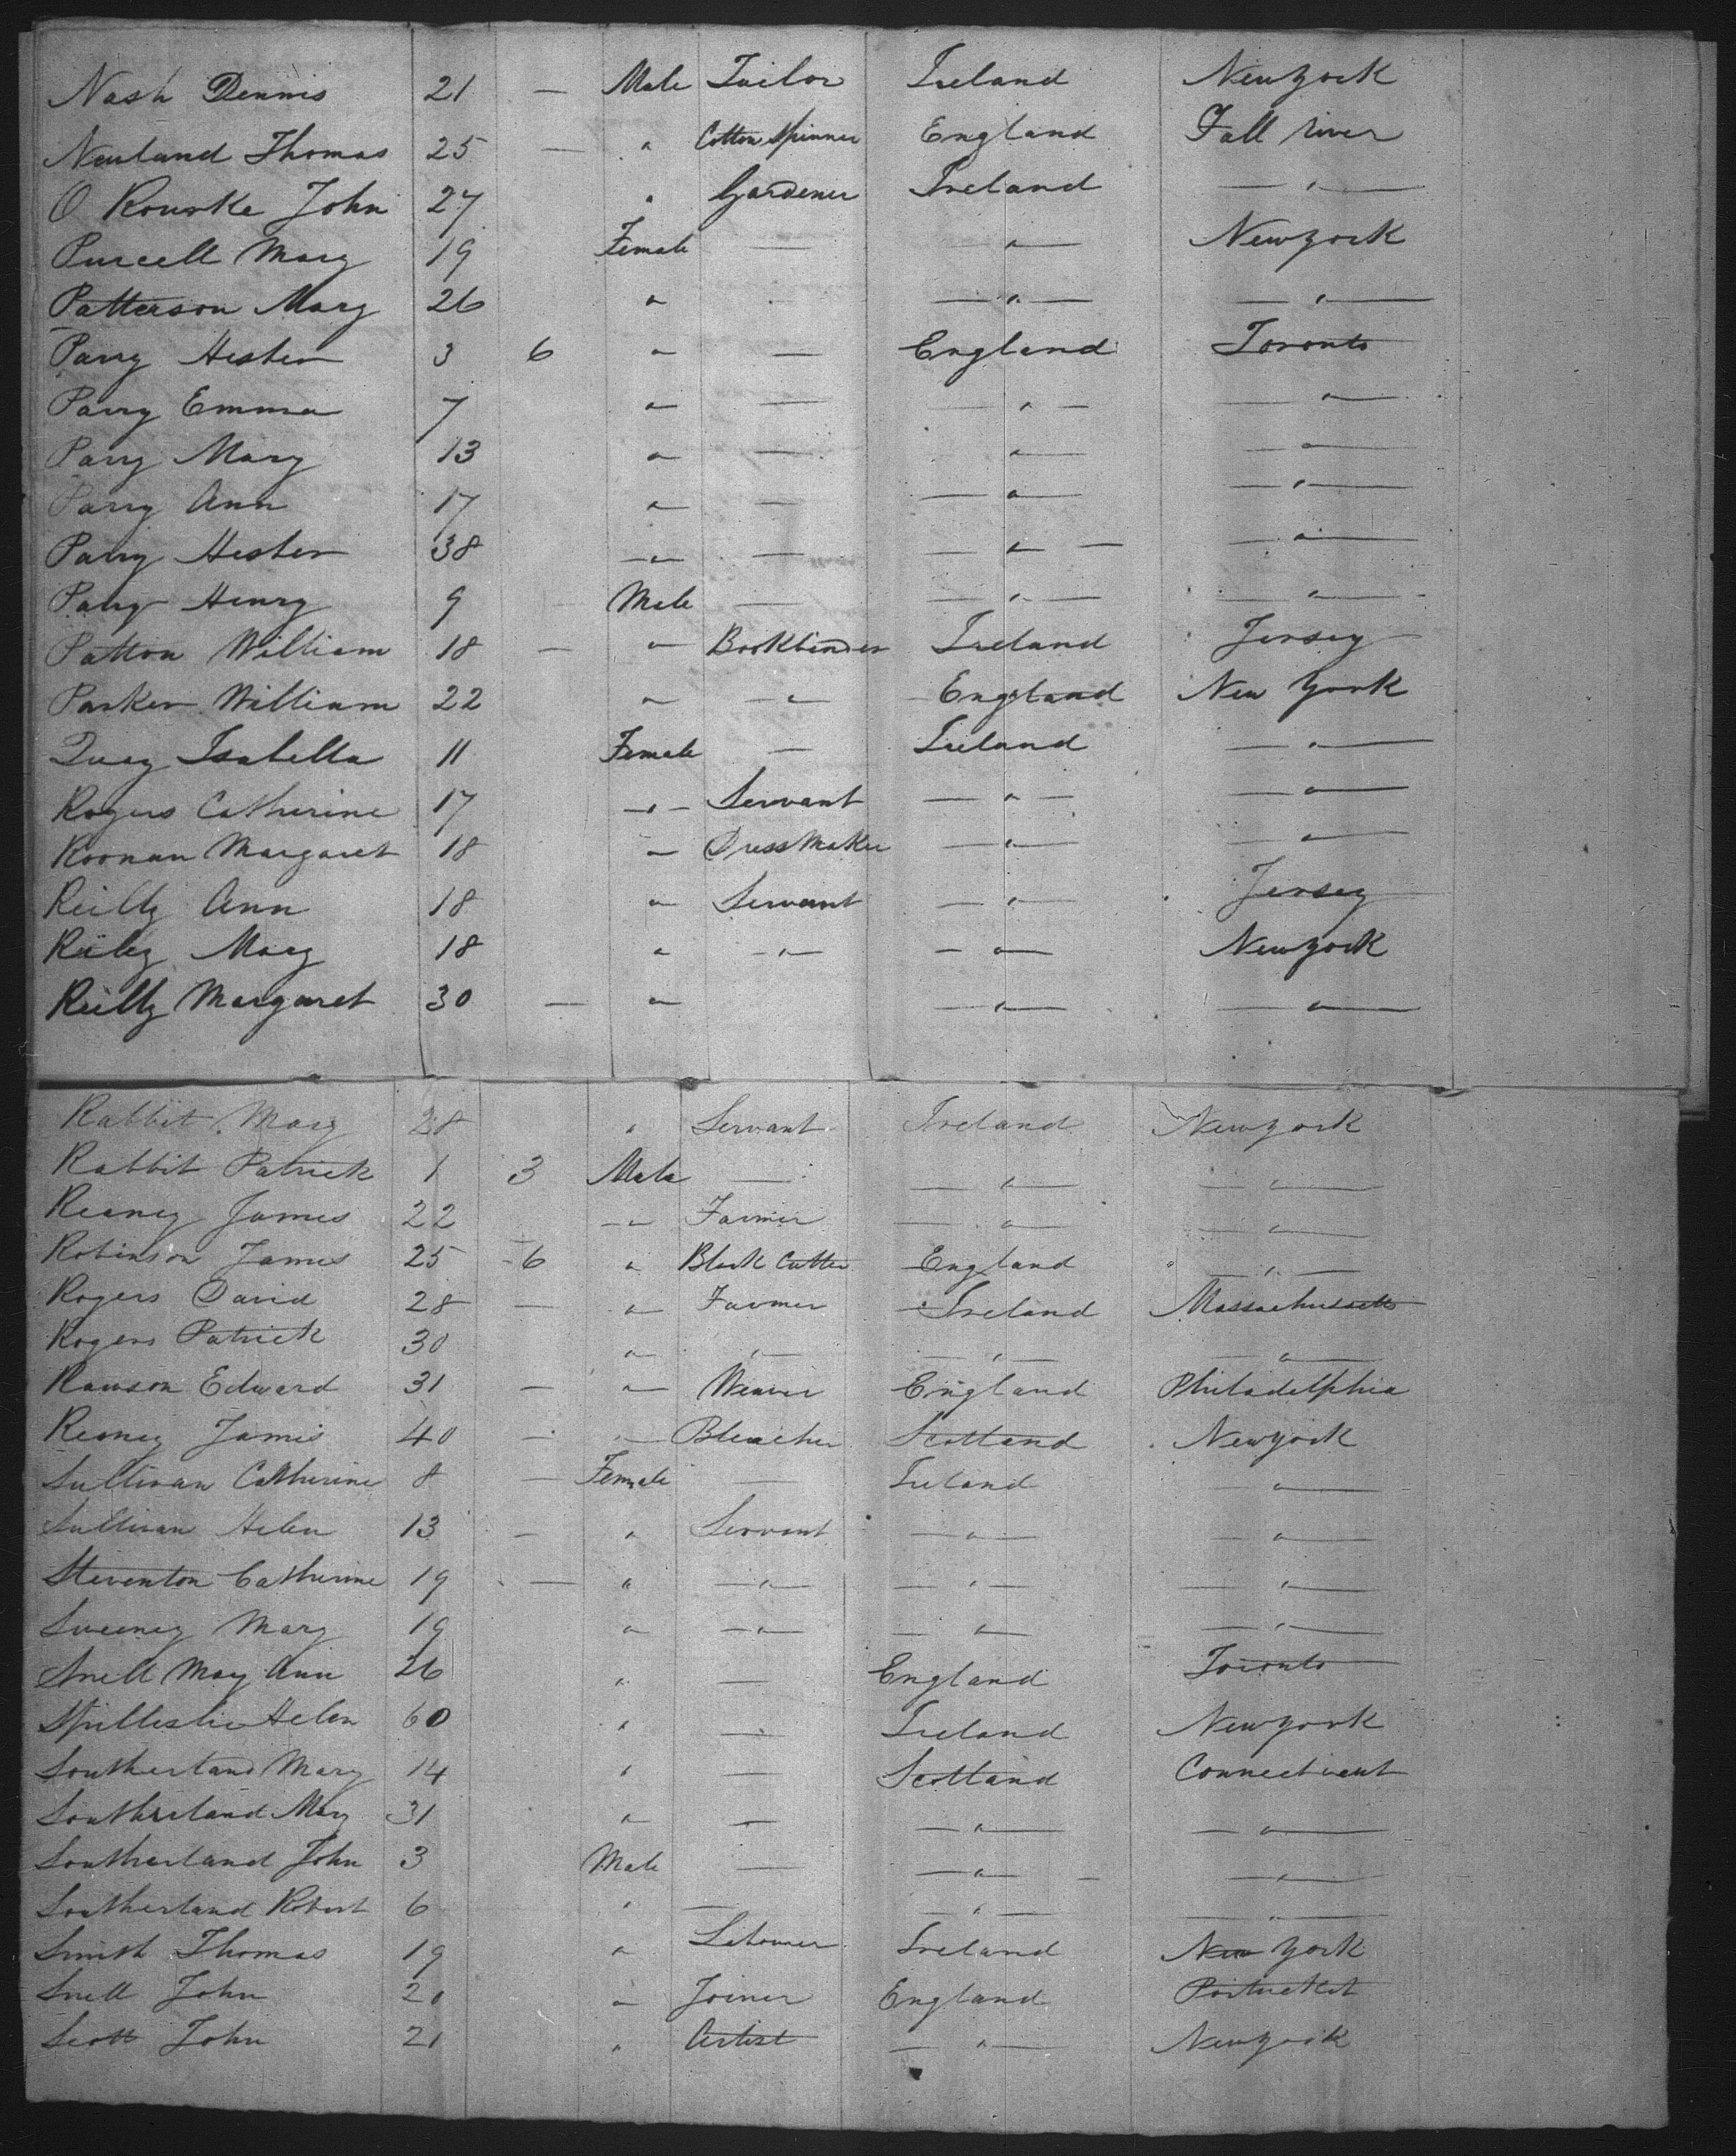 Nash Dennis 21 — Male Tailor Ireland Newyork
Newland Thomas 25 — " Cotton Spinner England Fall river
O Rourke John 27 " Gardener Ireland — " —
Purcell Mary 19 Female — — " — Newyork
Patterson Mary 26 " — " — — " —
Parry Hester 3 6 " — England Toronto
Parry Emma 7 " — — " — — " —
Parry Mary 13 " — — " — — " —
Parry Ann 17 " — — " — — " —
Parry Hester 38 — " — — — " — — " —
Parry Henry 9 — Male — — " — — " —
Patton William 18 — " Bookbinder Ireland Jersey
Parker William 22 " — " — England New York
Quay Isabella 11 Female — Ireland — " —
Rogers Catherine 17 — " — Servant — " — — " —
Roonan Margaret 18 " Dress Maker — " — — " —
Reilly Ann 18 " Servant — " — Jersey
Riley Mary 18 " — " — — " — Newyork
Reilly Margaret 30 — " — " — — " —
Rabbit Mary 28 " Servant Ireland Newyork
Rabbit Patrick 1 3 Male — — " — — " —
Reaney James 22 — " Farmer — " — — " —
Robinson James 25 6 " Block Cutter England — " —
Rogers David 28 — " Farmer Ireland Massachusetts
Rogers Patrick 30 " — " — — " — — " —
Rawson Edward 31 — " Weaver England Philadelphia
Reaney James 40 — " Bleacher Scotland Newyork
Sullivan Catherine 8 — Female — Ireland — " —
Sullivan Helen 13 — " Servant — " — — " —
Steventon Catherine 19 — " — " — — " — — " —
Sweeney Mary 19 " — " — — " — — " —
Snell May Ann 26 " — England Toronto
Helen 60 " — Ireland Newyork
Southerland Mary 14 " — Scotland Connecticut
Southerland Mary 31 " — — " — — " —
Southerland John 3 Male — — " — — " —
Southerland Robert 6 " — — " — — " —
Smith Thomas 19 " Labourer Ireland New York
Snell John 20 " Joiner England
Scott John 21 " Artist — " — Newyork